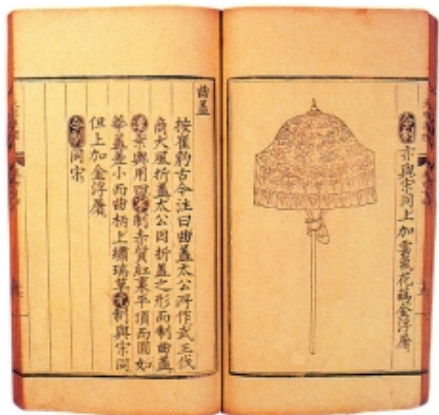 亦與宋同上加雲氣花蕊金浮屠
曲蓋
按崔豹古今注曰曲蓋太公所作武王伐
商大風折蓋太公因折蓋之形而制曲蓋
制赤質紅裏平頂而圓如
華蓋差小而曲柄上繡瑞草元制與宋同
但上加金浮屠
同宋